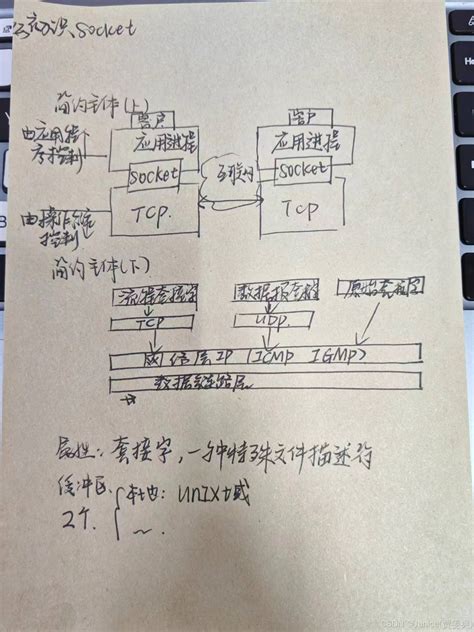 知识、Socket
简约主体(上)
客户
客户
由应用程
序控制
应用进程
应用进程
Socket
互联网
Socket
由操作系统
控制
TCP.
TCP
简约主体(下)
流式套接字
数据报套接字
原始套接字
TCP
UDP.
网络层IP (ICMP IGMP)
数据链路层
属性: 套接字,一种特殊文件描述符
缓冲区
本地: Unix域
2个.
~.